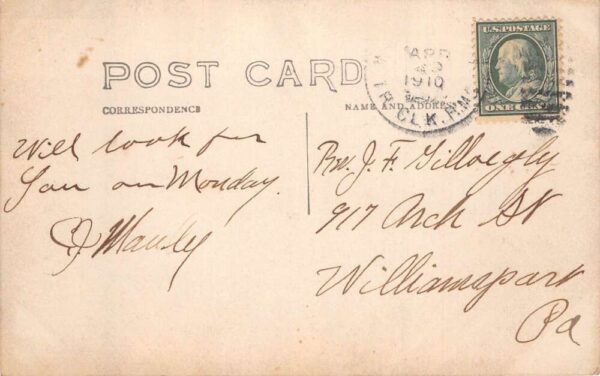 POST CARD
CORRESPONDENCE
NAME AND ADDRESS
APR
1910
CLK.
U.S. POSTAGE
ONE CENT
Will look for
You on Monday.
Manly
Rev. J. F.
917 Arch St
Williamsport
Pa